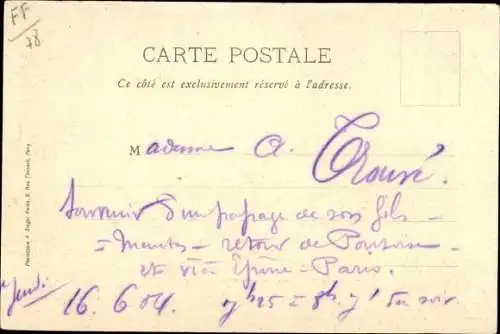 FF
78
CARTE POSTALE
Ce côté est exclusivement réservé à l'adresse.
Madame A. Trousé.
Souvenir d'un passage de son fils –
= Mantes – retour de Pontoise
et via Épône – Paris.
Jeudi 16.6.04. 7h25 à 8h. du soir